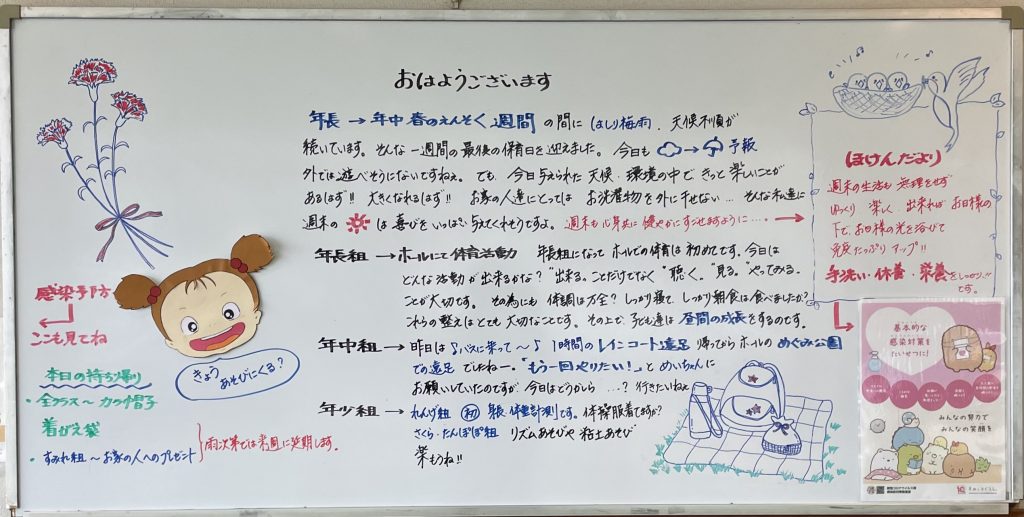 おはようございます
年長→年中 春のえんそく週間の間に はしり梅雨、天候不順が
続いています。そんな一週間の最後の保育日を迎えました。今日も → 予報
外では遊べそうにないですねぇ。でも、今日与えられた天候・環境の中できっと楽しいことが
あるはず!! 大きくなれるはず!! お家の人達にとっては お洗濯物を外に干せない… そんな私達に
週末の は喜びをいっぱい与えてくれそうですよ。週末も心身共に健やかにすごせますように…。→
年長組→ホールにて体育活動 年長組になって ホールでの体育は初めてです。今日は
どんな活動が出来るかな？"出来る。ことだけでなく"聴く。"見る。"やってみる。
ことが大切です。その為にも 体調は万全？しっかり寝て、しっかり朝食は食べましたか？
これらの整えはとても大切なことです。その上で、子ども達は昼間の成長をするのです。
年中組→昨日は♪バスに乗って〜♪1時間のレインコート遠足 帰ってからホールのめぐみ公園
での遠足でしたねー。「もう一回やりたい！」とめいちゃんに
お願いしていたのですが、今日はどうかしら…？行きたいねぇ
年少組→れんげ組 初 身長・体重計測です。体操服着てますか？
さくら・たんぽぽ組 リズムあそびや粘土あそび
楽もうね!!
ほけんだより
週末の生活も 無理をせず
ゆっくり 楽しく 出来れば お日様の
下で、お日様の光を浴びて
免疫たっぷりアップ!!
手洗い・休養・栄養をしっかり!!
です。
感染予防
ここも見てね
きょう あそびにくる？
本日の持ち帰り
・全クラス〜カラー帽子
着がえ袋
・すみれ組〜お家の人へのプレゼント
雨次第では来週に延期します。
基本的な
感染対策を
たいせつに！
みんなの努力で
みんなの笑顔を